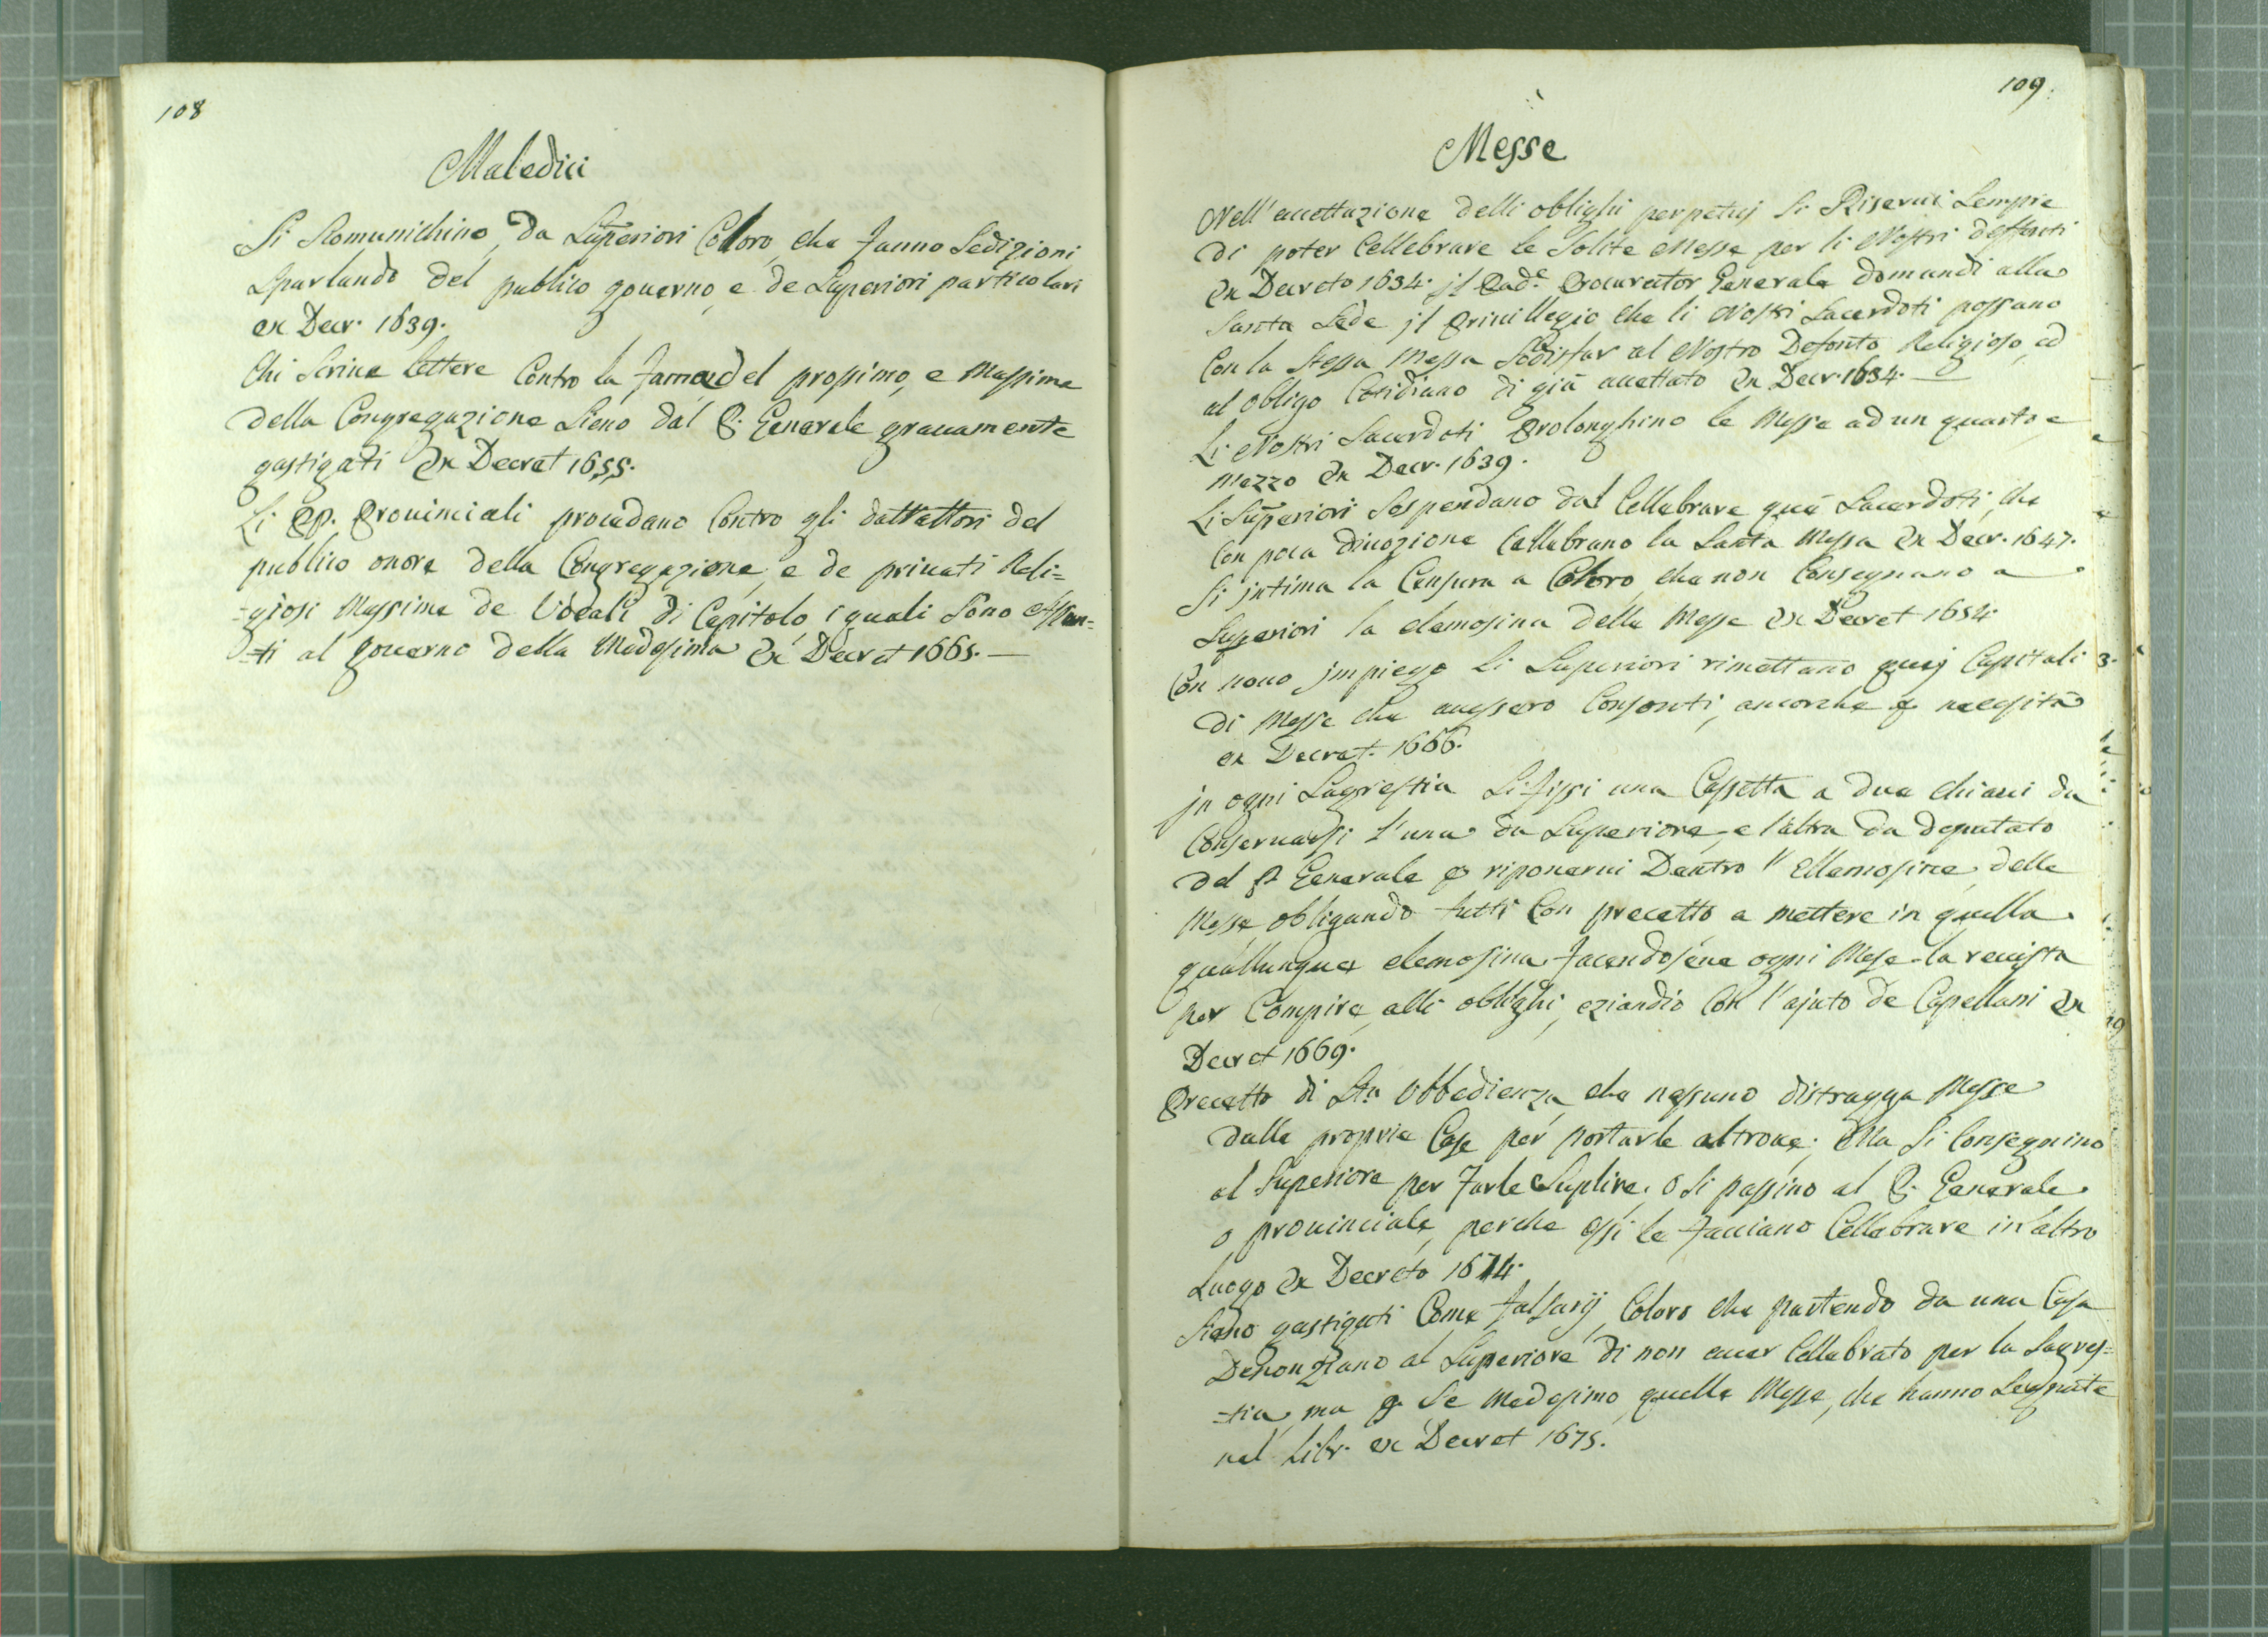 108
Maledici
Si Scomunichino, da Superiori Coloro, che fanno Sedizioni
Sparlando del publico gouerno, e de Superiori particolari
ex Decr. 1639.
Chi Scriue lettere Contro la fama del prossimo, e Massime
della Congregazione Sieno dal P. Generale grauamente
gastigati Ex Decret 1655.
Li PP. Prouinciali procedano Contro gli dattrattori del
publico onore della Congregazione, e de priuati Reli=
=giosi Massime de Vocali di Capitolo i quali Sono Assun=
=ti al gouerno della Medesima Ex Decret 1665.—
109.
Messe
Nell' accettazione delli oblighi perpetuj Si Riserui Sempre
di poter Cellebrare le Solite Messe per li Nostri deffonti
Ex Decreto 1634. jl Pad.e Procurator Generale domandi alla
Santa Sede jl Priuillegio che li Nostri Sacerdoti possano
Con la Stessa Messa Sodisfar al Nostro Defonto Religioso, ed
al obligo Cotidiano di già accettato Ex Decr. 1634.—
Li Nostri Sacerdoti Prolonghino le Messe ad un quarto, e
mezzo Ex Decr. 1639.
Li Superiori Sospendano dal Cellebrare que Sacerdoti, che
Con poca diuozione Cellebrano la Santa Messa Ex Decr. 1647.
Si jntima la Censura a Coloro, che non Consegnano a
Superiori la elemosina delle Messe Ex Decret 1654
Con nouo jmpiego li Superiori rimettano quej Capitali
di Messe che auessero Consonti, ancorche p necessità
ex Decret. 1666.
jn ogni Sagrestia Si fissi una Cassetta a due chiaui da
Conseruarsi l'una da Superiore, e l'altra da deputato
del P. Generale p riponerui Dentro l' Ellemosine delle
Messe obligando tutti Con precetto a mettere in quella
quallunque elemosina facendosene ogni Mese la reuista
per Compire, alli oblighi, eziandio Con l'ajuto de Capellani Ex
Decret 1669.
Precetto di Sta Obbedienza che nessuno distragga Messe
dalle proprie Case per portarle altroue. Ma Si Consegnino
al Superiore per farle Suplire, o Si passino al P. Generale
o prouinciale, perche essi le facciano Cellebrare in altro
Luogo Ex Decreto 1674.
Sieno gastigati Come falsarij Coloro che partendo da una Casa
Denonziano al Superiore di non auer Cellebrato per la Sagres=
=tia, ma p Se Medesimo quelle Messe, che hanno Segnate
nel Libr. ex Decret 1675.